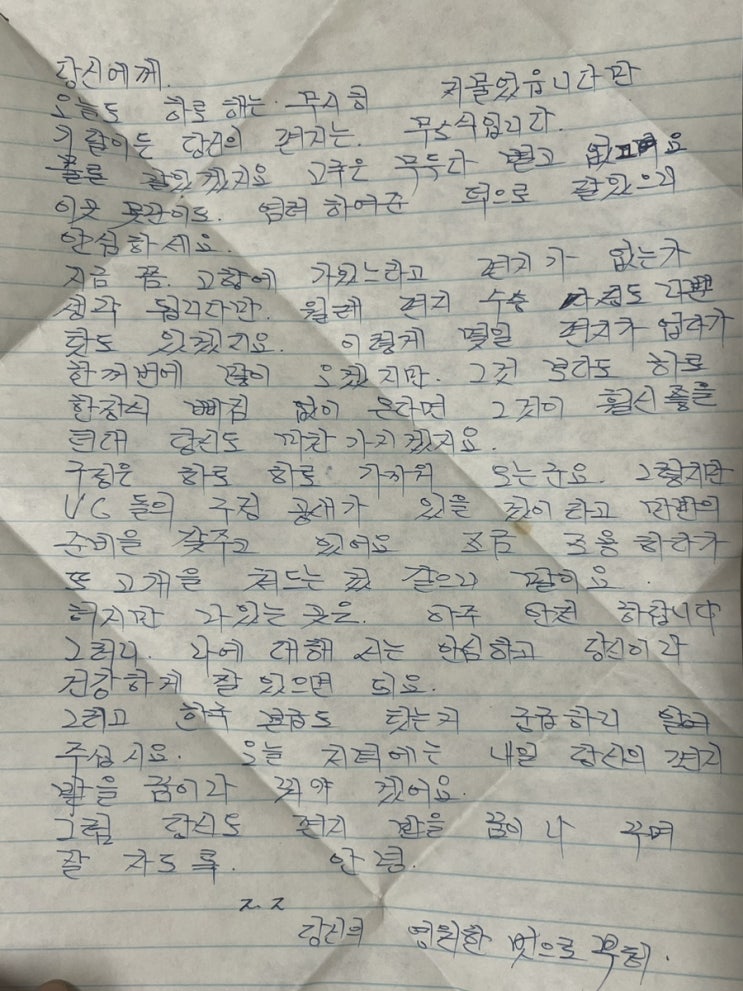 당신에게.
오늘도 하로 해는 무사히 저물었읍니다만
기다리는 당신의 편지는. 무소식입니다.
물론 잘있겠지요 고국은 무두다 별고 없고요
이웃 분간이도. 염려 하여준 덕으로 잘있으니
안심하세요.
지금 쯤. 고향에 가있느라고 편지가 없는가
생각 됩니다만. 월레 편지 수송 사정도 과면
탓도 있겠지요. 이렇게 몇일 편지가 없다가
한꺼번에 많이 오겠지만. 그것 보다도 하로
한장식 빠짐 없이 온다면 그것이 훨신 좋을
턴대 당신도 마찬가지겠지요.
구정은 하로 하로 가까워 오는군요. 그렇지만
VC 들의 구정 공세가 있을 것이라고 만반의
준비을 갖추고 있어요 조금 조용하다가
또 고개을 처드는 것 같으니 말이요.
허지만 나있는 곳은. 아주 안전 하답니다
그러니. 나에 대해서는 안심하고 당신이나
건강하게 잘 있으면 되요.
그리고 한국 돈도 탓는지 궁금하니 알여
주십시요. 오늘 저녁에는 내일 당신의 편지
받을 꿈이나 꾸어야 겠어요.
그럼 당신도 편지 받을 꿈이나 꾸며
잘 자도록. 안령.
당신의 영원한 벗으로 부터.